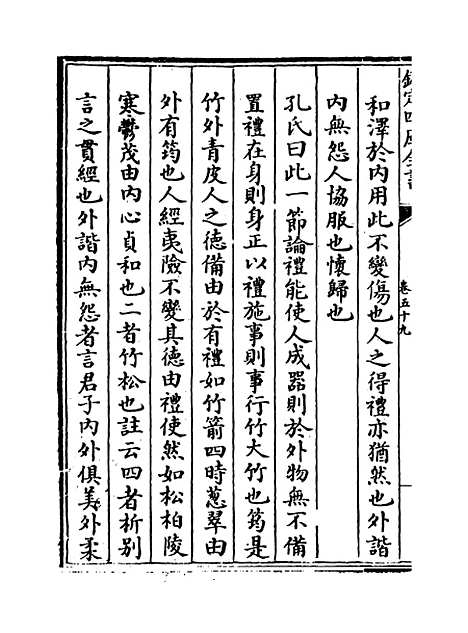 欽定四庫全書
卷五十九
和澤於內用此不變傷也人之得禮亦猶然也外諧
內無怨人協服也懷歸也
孔氏曰此一節論禮能使人成器則於外物無不備
置禮在身則身正以禮施事則事行竹大竹也筠是
竹外青皮人之德備由於有禮如竹箭四時蔥翠由
外有筠也人經夷險不變其德由禮使然如松柏陵
寒鬱茂由內心貞和也二者竹松也註云四者析別
言之貫經也外諧內無怨者言君子內外俱美外柔